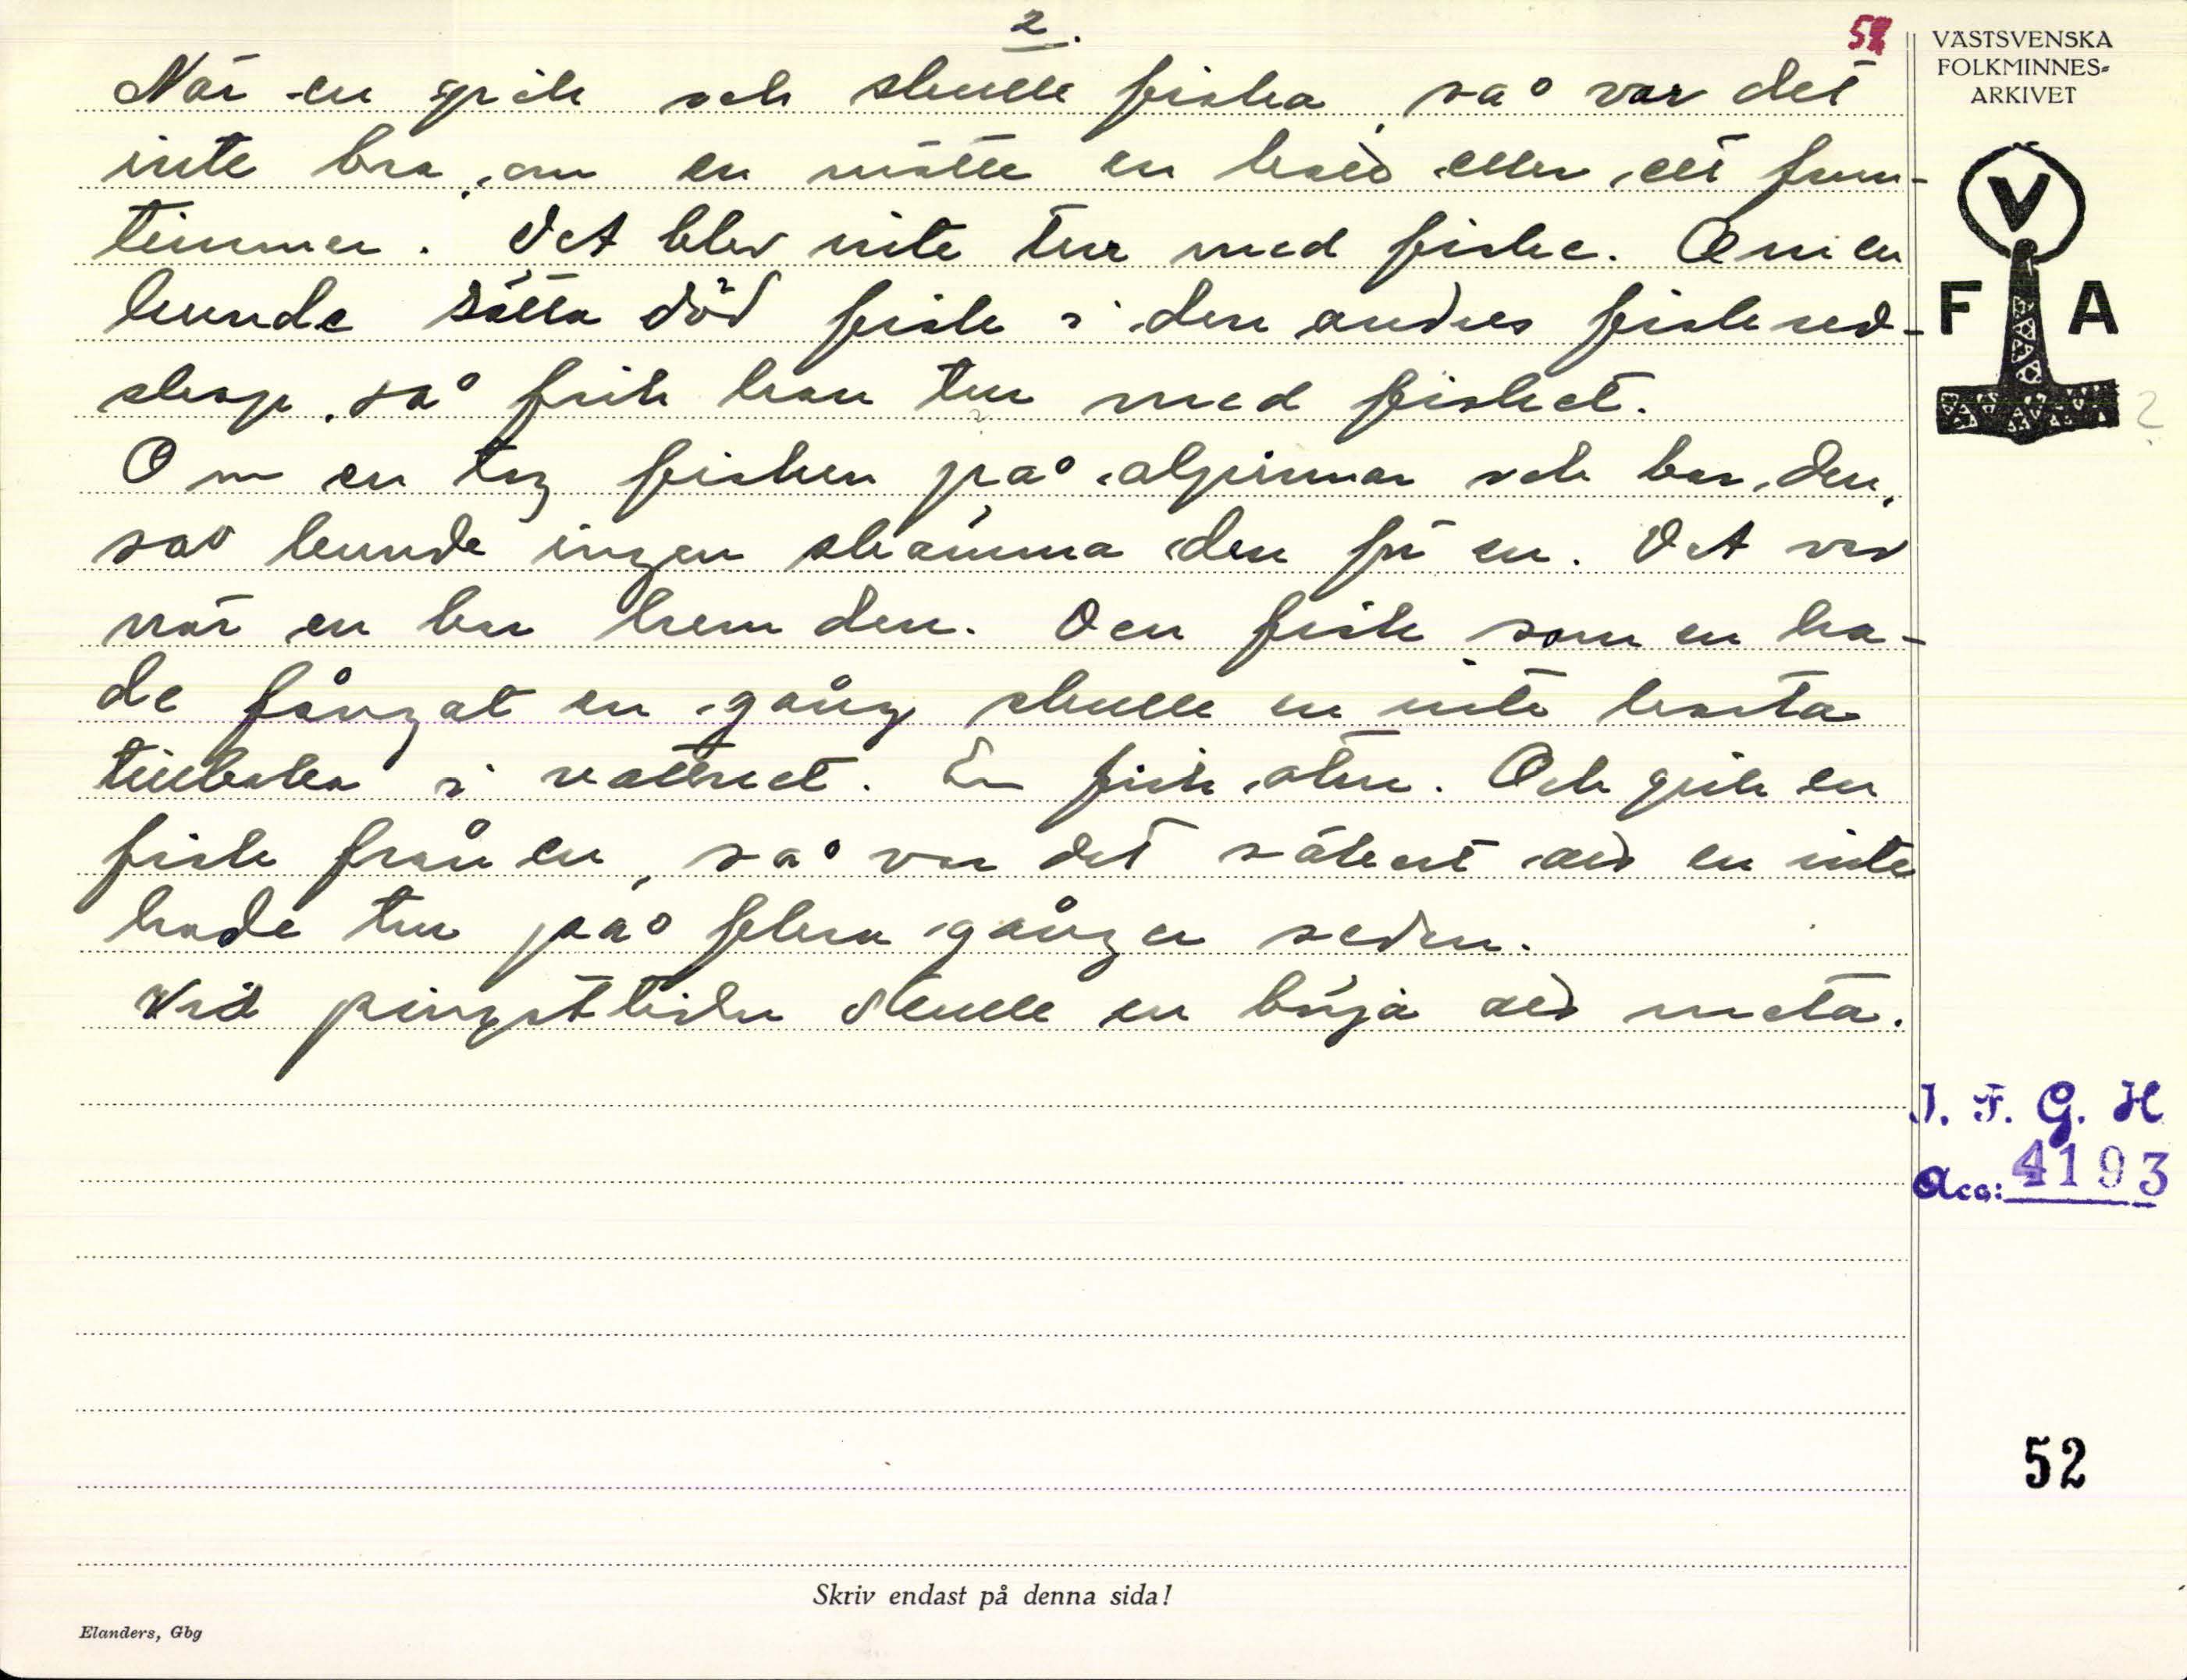 2.
52
VÄSTSVENSKA
FOLKMINNES-
ARKIVET
När en gick och skulle fiska, så var det
inte bra, om en mötte en katt eller ett frun-
timmer. Det blev inte tur med fiske. Om en
kunde sätta död fisk i den andres fiskered-
skap, så fick han tur med fisket.
Om en tog fisken på alpinnar och bar den,
så kunde ingen skämma den för en. Det var
när en bar hem den. Den fisk som en ha-
de fångat en gång skulle en inte kasta
tillbaka i vattnet. En fick äta. Och gick en
fisk från en, så var det säkert att en inte
hade tur på flera gånger sedan.
Vid pingsttiden skulle en börja att meta.
V
F A
I. F. G. H
Acc: 4193
52
Skriv endast på denna sida!
Elanders, Gbg